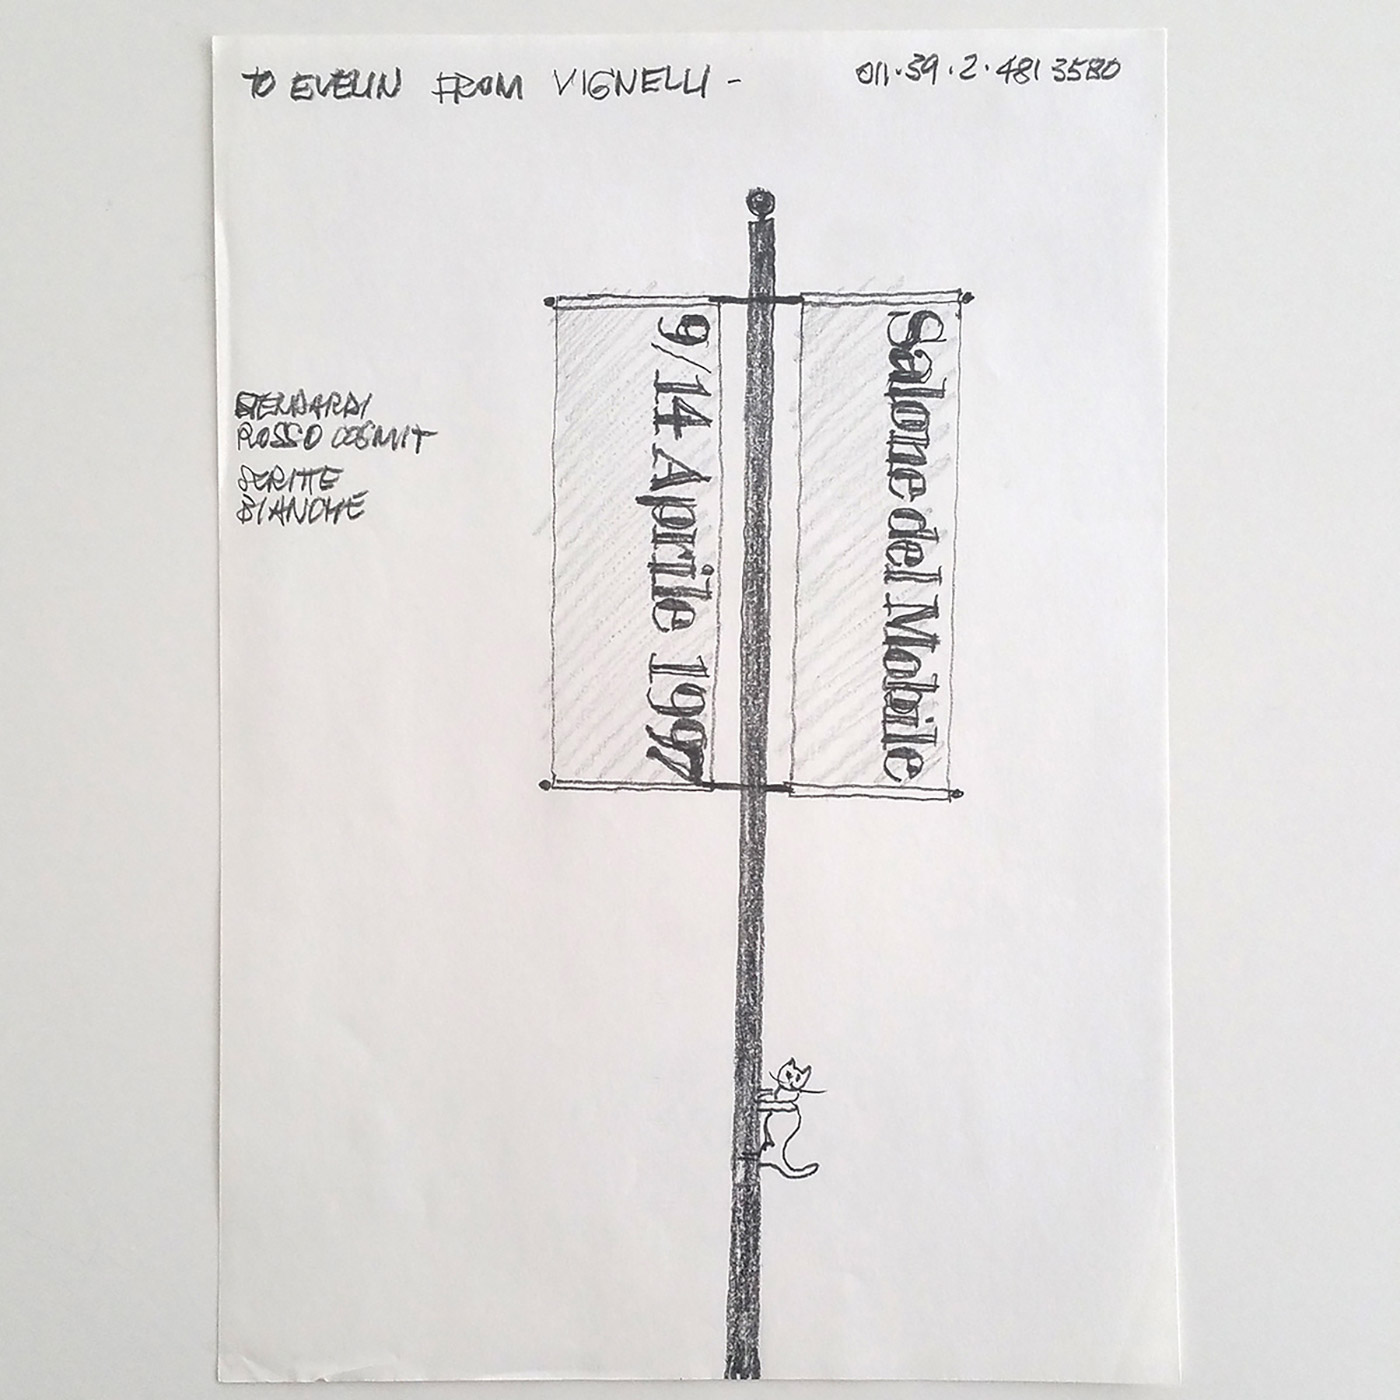 TO EVELIN FROM VIGNELLI -
011·39·2·481 3580
STENDARDI
ROSSO COSMIT
SCRITTE
BIANCHE
9/14 Aprile 1997
Salone del Mobile